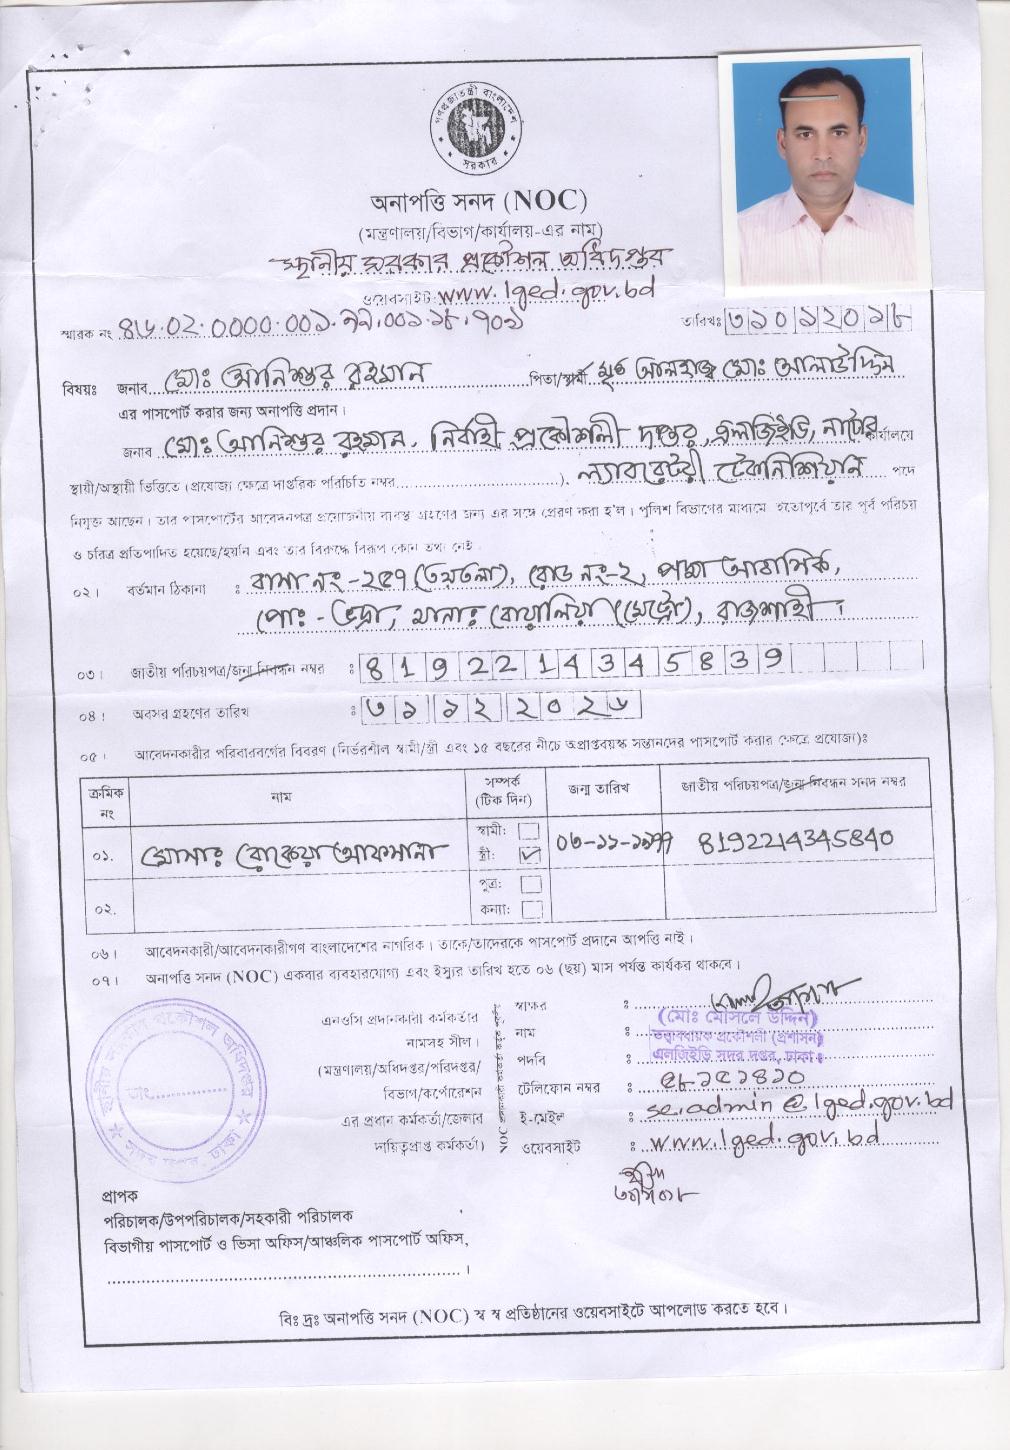 গণপ্রজাতন্ত্রী বাংলাদেশ
সরকার
অনাপত্তি সনদ (NOC)
(মন্ত্রণালয়/বিভাগ/কার্যালয়-এর নাম)
স্থানীয় সরকার প্রকৌশল অধিদপ্তর
ওয়েবসাইট: www.lged.gov.bd
স্মারক নং ৪৬.০২.০০০০.০০১.৯৯.০০১.১৮.৭০১
তারিখঃ ৩১০১২০১৮
বিষয়ঃ জনাব মোঃ আনিশুর রহমান পিতা/স্বামী মৃত আলহাজ্ব মোঃ আলাউদ্দিন
এর পাসপোর্ট করার জন্য অনাপত্তি প্রদান।
জনাব মোঃ আনিশুর রহমান, নির্বাহী প্রকৌশলী দপ্তর, এলজিইডি, নাটোর কার্যালয়ে
স্থায়ী/অস্থায়ী ভিত্তিতে (প্রযোজ্য ক্ষেত্রে দাপ্তরিক পরিচিতি নম্বর..............................), ল্যাবরেটরী টেকনিশিয়ান পদে
নিযুক্ত আছেন। তার পাসপোর্টের আবেদনপত্র প্রয়োজনীয় ব্যবস্থা গ্রহণের জন্য এর সঙ্গে প্রেরণ করা হ'ল। পুলিশ বিভাগের মাধ্যমে ইতোপূর্বে তার পূর্ব পরিচয়
ও চরিত্র প্রতিপাদিত হয়েছে/হয়নি এবং তার বিরুদ্ধে বিরূপ কোন তথ্য নেই।
০২। বর্তমান ঠিকানা : বাসা নং-২৫৭ (৩য়তলা), রোড নং-২, পদ্মা আবাসিক,
পোঃ - ভদ্রা, থানাঃ বোয়ালিয়া (মেট্রো), রাজশাহী।
০৩। জাতীয় পরিচয়পত্র/জন্ম নিবন্ধন নম্বর : 8192214345839
০৪। অবসর গ্রহণের তারিখ : ৩১১২২০২৬
০৫। আবেদনকারীর পরিবারবর্গের বিবরণ (নির্ভরশীল স্বামী/স্ত্রী এবং ১৫ বছরের নীচে অপ্রাপ্তবয়স্ক সন্তানদের পাসপোর্ট করার ক্ষেত্রে প্রযোজ্য)ঃ
ক্রমিক নং নাম সম্পর্ক (টিক দিন) জন্ম তারিখ জাতীয় পরিচয়পত্র/জন্ম নিবন্ধন সনদ নম্বর
০১. মোসাঃ রোকেয়া আফসানা স্বামী: স্ত্রী: ✓ ০৬-১১-১৯৭৭ 8192214345840
০২. পুত্র: কন্যা:
০৬। আবেদনকারী/আবেদনকারীগণ বাংলাদেশের নাগরিক। তাকে/তাদেরকে পাসপোর্ট প্রদানে আপত্তি নাই।
০৭। অনাপত্তি সনদ (NOC) একবার ব্যবহারযোগ্য এবং ইস্যুর তারিখ হতে ০৬ (ছয়) মাস পর্যন্ত কার্যকর থাকবে।
স্থানীয় সরকার প্রকৌশল অধিদপ্তর
সদর দপ্তর, ঢাকা
এনওসি প্রদানকারী কর্মকর্তার
নামসহ সীল।
(মন্ত্রণালয়/অধিদপ্তর/পরিদপ্তর/
বিভাগ/কর্পোরেশন
এর প্রধান কর্মকর্তা/জেলার
দায়িত্বপ্রাপ্ত কর্মকর্তা)
স্বাক্ষর :
নাম : (মোঃ মোসলে উদ্দিন)
পদবি : তত্ত্বাবধায়ক প্রকৌশলী (প্রশাসন)
এলজিইডি সদর দপ্তর, ঢাকা।
টেলিফোন নম্বর : ৫৮১৫১৪১০
ই-মেইল : se.admin@lged.gov.bd
ওয়েবসাইট : www.lged.gov.bd
প্রাপক
পরিচালক/উপপরিচালক/সহকারী পরিচালক
বিভাগীয় পাসপোর্ট ও ভিসা অফিস/আঞ্চলিক পাসপোর্ট অফিস,
..............................................................।
বিঃ দ্রঃ অনাপত্তি সনদ (NOC) স্ব স্ব প্রতিষ্ঠানের ওয়েবসাইটে আপলোড করতে হবে।